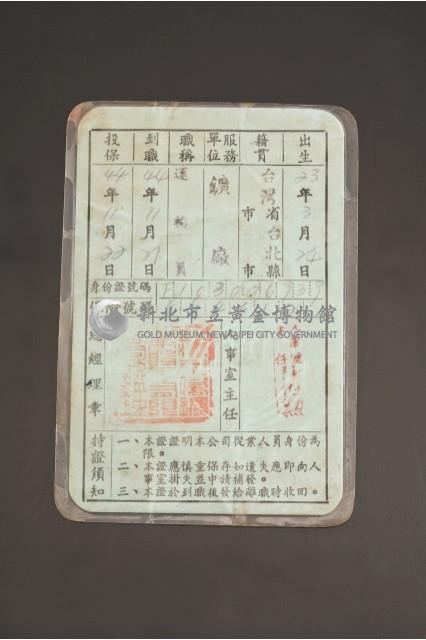 出生 23年3月24日
籍貫 台灣省台北縣市市
服務單位 鑛廠
職稱 運輸員
到職 44年11月21日
投保 44年11月22日
身份證號碼
保險號碼
新北市立黃金博物館
GOLD MUSEUM, NEW TAIPEI CITY GOVERNMENT
人事室主任
總經理章
持證須知
一、本證證明本公司從業人員身份為限。
二、本證應慎重保存如遺失應即向人事室掛失並申請補發。
三、本證於到職後發給離職時收回。